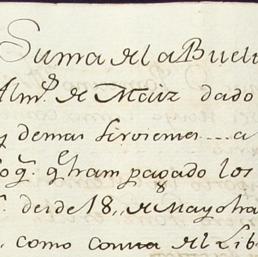 Suma de la Buel
Alm.^s de Maiz dado
y demas sirvientes....a
q.^e han pagado los
desde 18,, de Mayo ha
, como consta del Lib